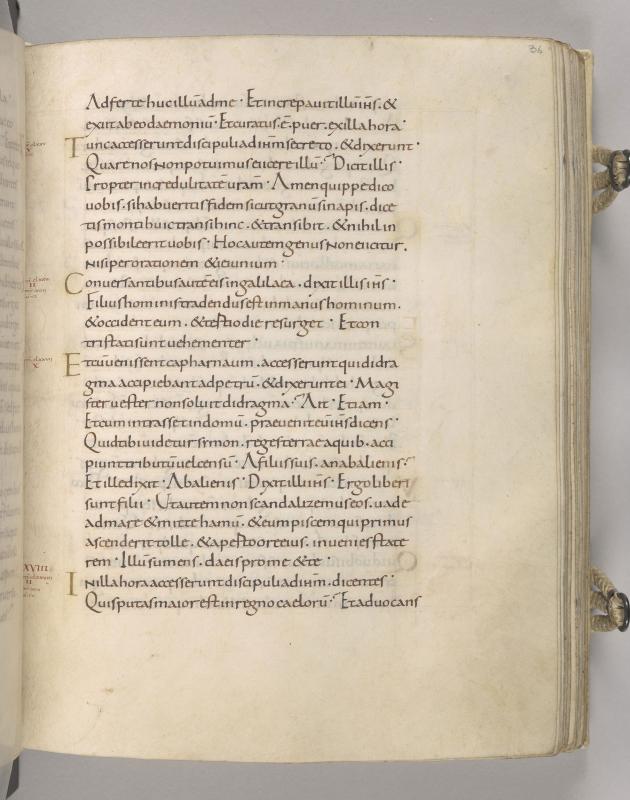 36
Adferte huc illū adme · Et increpauit illū ihs̄ · &
exiit abeo daemoniū · Et curatus · ē · puer · exilla hora ·
Tunc accesserunt discipuli adihm̄ secreto · & dixerunt ·
Quare nos non potuimus eicere illū · Dicit illis ·
Propter incredulitatē uram̄ · Amen quippe dico
uobis · si habueritis fidem sicut granū sinapis · dice
tis monti huic transi hinc · & transibit · & nihil in
possibile erit uobis · Hoc autem genus non eicitur ·
nisi per orationem & ieiunium ·
Conuersantibus autē eis in galilaea · dixit illis ihs̄ ·
Filius hominis tradendus est in manus hominum ·
& occident eum · & tertio die resurget · Et con
tristati sunt uehementer ·
Et cū uenissent capharnaum · accesserunt qui didra
gma accipiebant ad petrū · & dixerunt ei · Magi
ster uester non soluit didragma · Ait · Etiam ·
Et cum intrasset in domū · praeuenit eū ihs̄ dicens ·
Quid tibi uidetur simon · reges terrae a quib · acci
piunt tributū uel censū · A filiis suis · an ab alienis ·
Et ille dixit · Ab alienis · Dixit illi ihs̄ · Ergo liberi
sunt filii · Ut autem non scandalizemus eos · uade
ad mare & mitte hamū · & eum piscem qui primus
ascenderit tolle · & aperto ore eius · inuenies state
rem · Illum sumens · da eis pro me & te ·
XVIII
In illa hora accesserunt discipuli ad ihm̄ · dicentes ·
Quis putas maior est in regno caelorū · Et aduocans